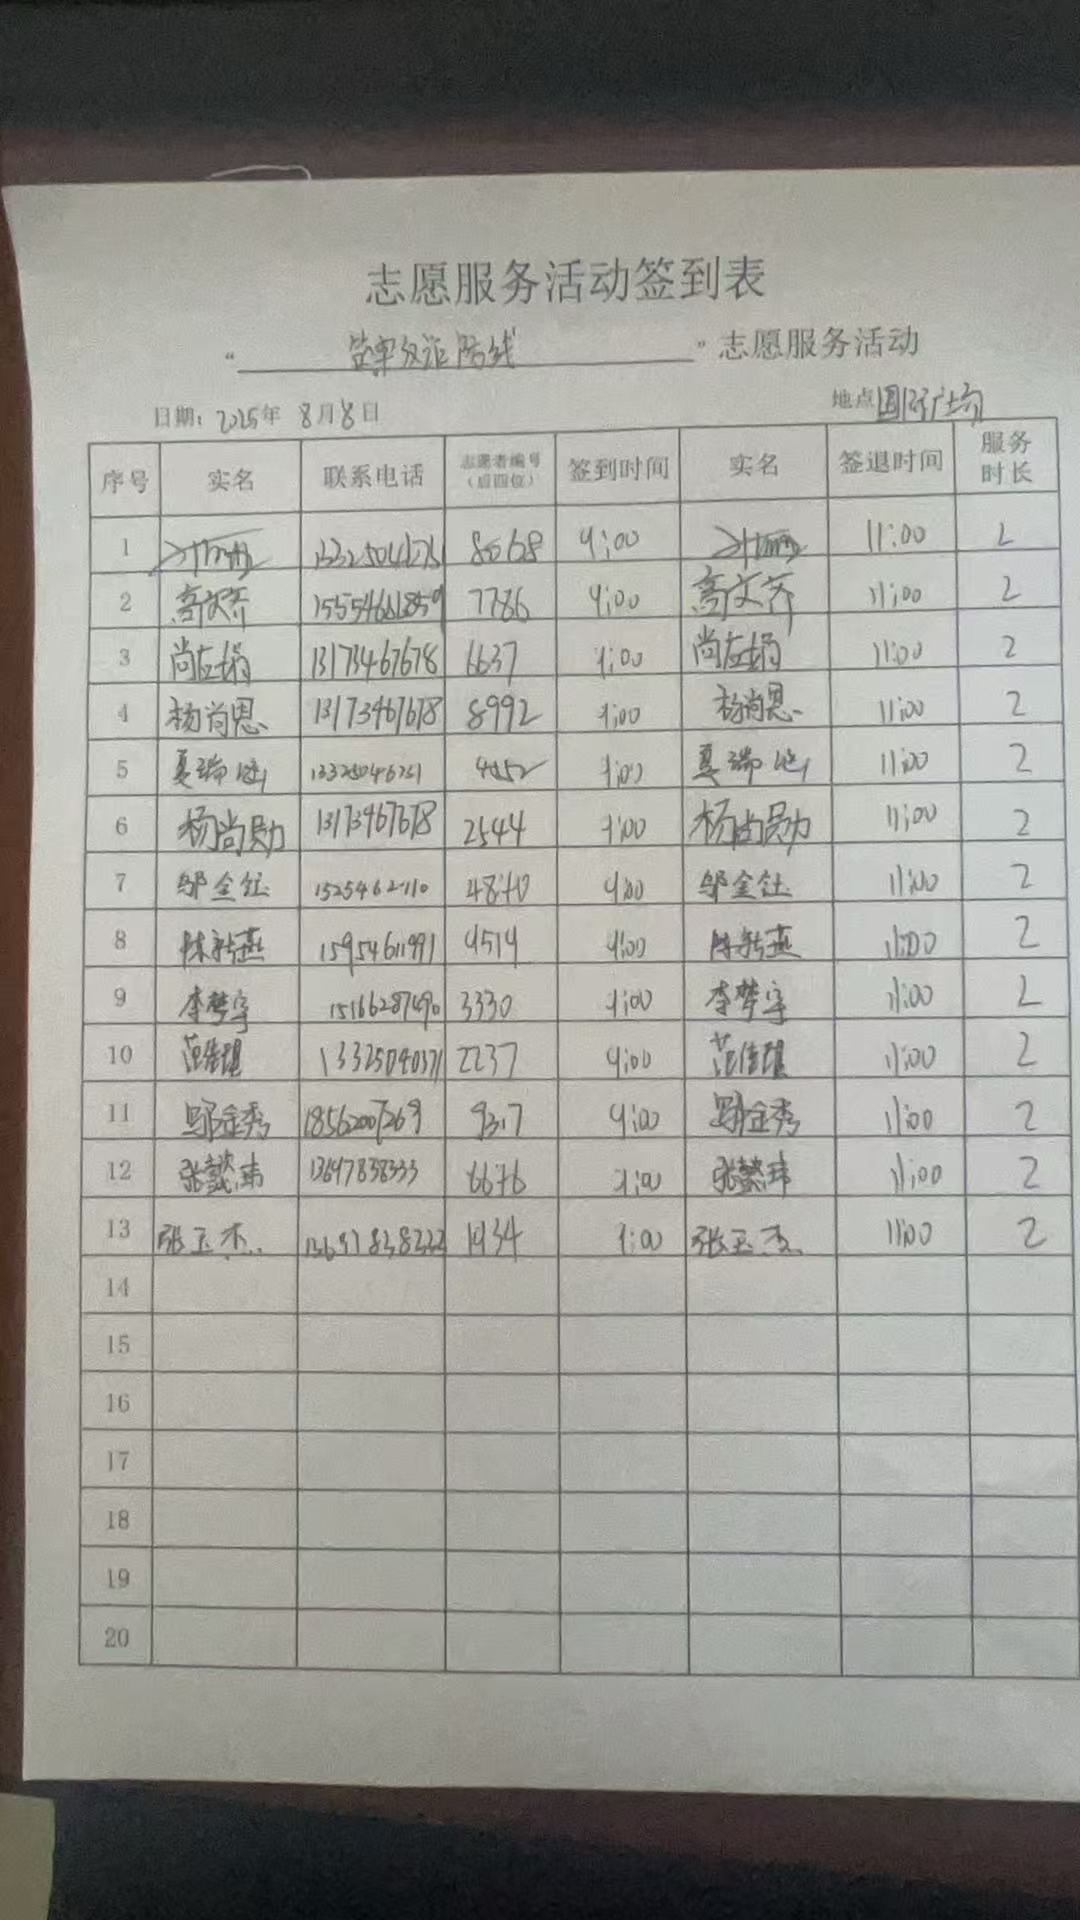 志愿服务活动签到表
“ 筑牢反诈防线 ” 志愿服务活动
日期: 2025年 8月8日 地点 国际广场
序号 实名 联系电话 志愿者编号(后四位) 签到时间 实名 签退时间 服务时长
1 8668 9:00 11:00 2
2 高文乔 15554661859 7786 9:00 高文乔 11:00 2
3 尚左娟 13173467678 6637 9:00 尚左娟 11:00 2
4 杨尚恩 13173467678 8992 9:00 杨尚恩 11:00 2
5 夏瑞 9:00 夏瑞 11:00 2
6 杨尚勋 13173467678 2544 9:00 杨尚勋 11:00 2
7 邬金钰 9:00 邬金钰 11:00 2
8 陈新燕 15954611991 4514 9:00 陈新燕 11:00 2
9 李梦宇 15166287490 3330 9:00 李梦宇 11:00 2
10 范佳琪 13325040371 2237 9:00 范佳琪 11:00 2
11 金秀 18562007269 9317 9:00 金秀 11:00 2
12 张懿玮 13697838333 6676 9:00 张懿玮 11:00 2
13 张玉杰 1934 9:00 张玉杰 11:00 2
14
15
16
17
18
19
20